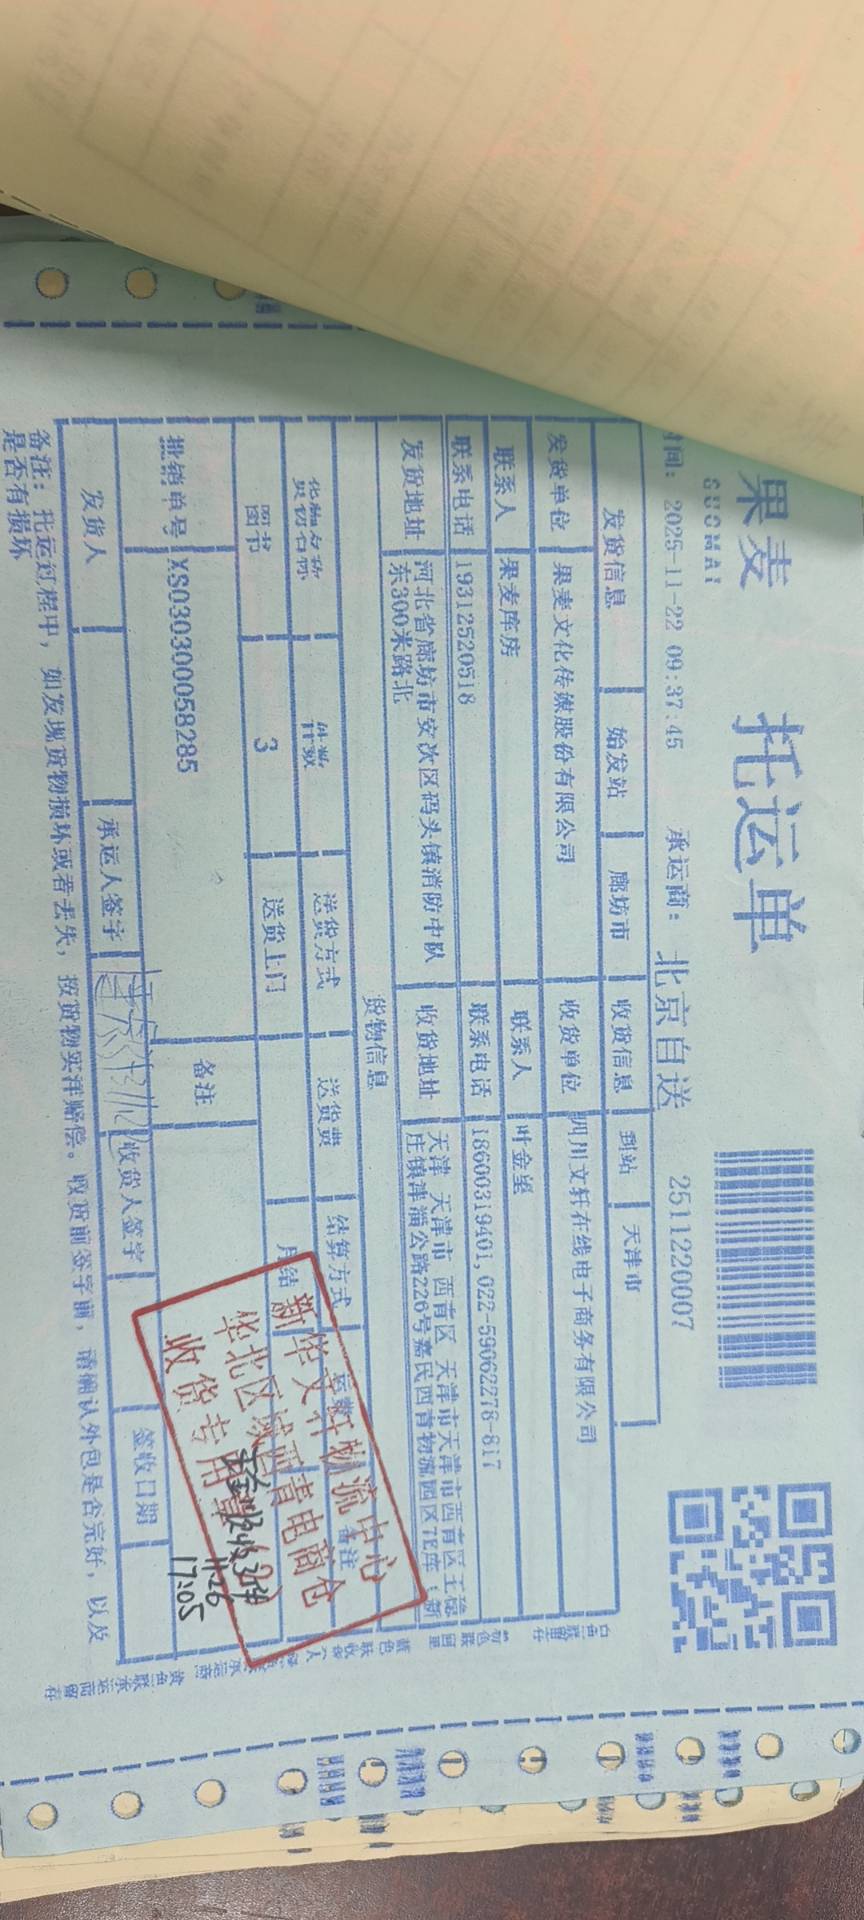 果麦
GUOMAI
托运单
时间: 2025-11-22 09:37:45 承运商: 北京自送 2511220007
发货信息 始发站 廊坊市 收货信息 到站 天津市
发货单位 果麦文化传媒股份有限公司 收货单位 四川文轩在线电子商务有限公司
联系人 果麦库房 联系人
联系电话 19312520518 联系电话 18600319401,022-59062278-817
发货地址 河北省廊坊市安次区码头镇消防中队
东300米路北
收货地址 天津 天津市 西青区 天津市天津市西青区王稳
庄镇津淄公路226号嘉民西青物流园区7E库(新
货物信息
货物名称 件数 送货方式 送货费 结算方式 备注
图书 3 送货上门 月结
批销单号 XS030300058285 备注
发货人 承运人签字 收货人签字 签收日期
备注: 托运过程中, 如发现货物损坏或者丢失, 按货物实洋赔偿。收货前签字前, 请确认外包是否完好, 以及
是否有损坏
新华文轩物流中心
华北区域西青电商仓
收货专用章
11.26
17:05